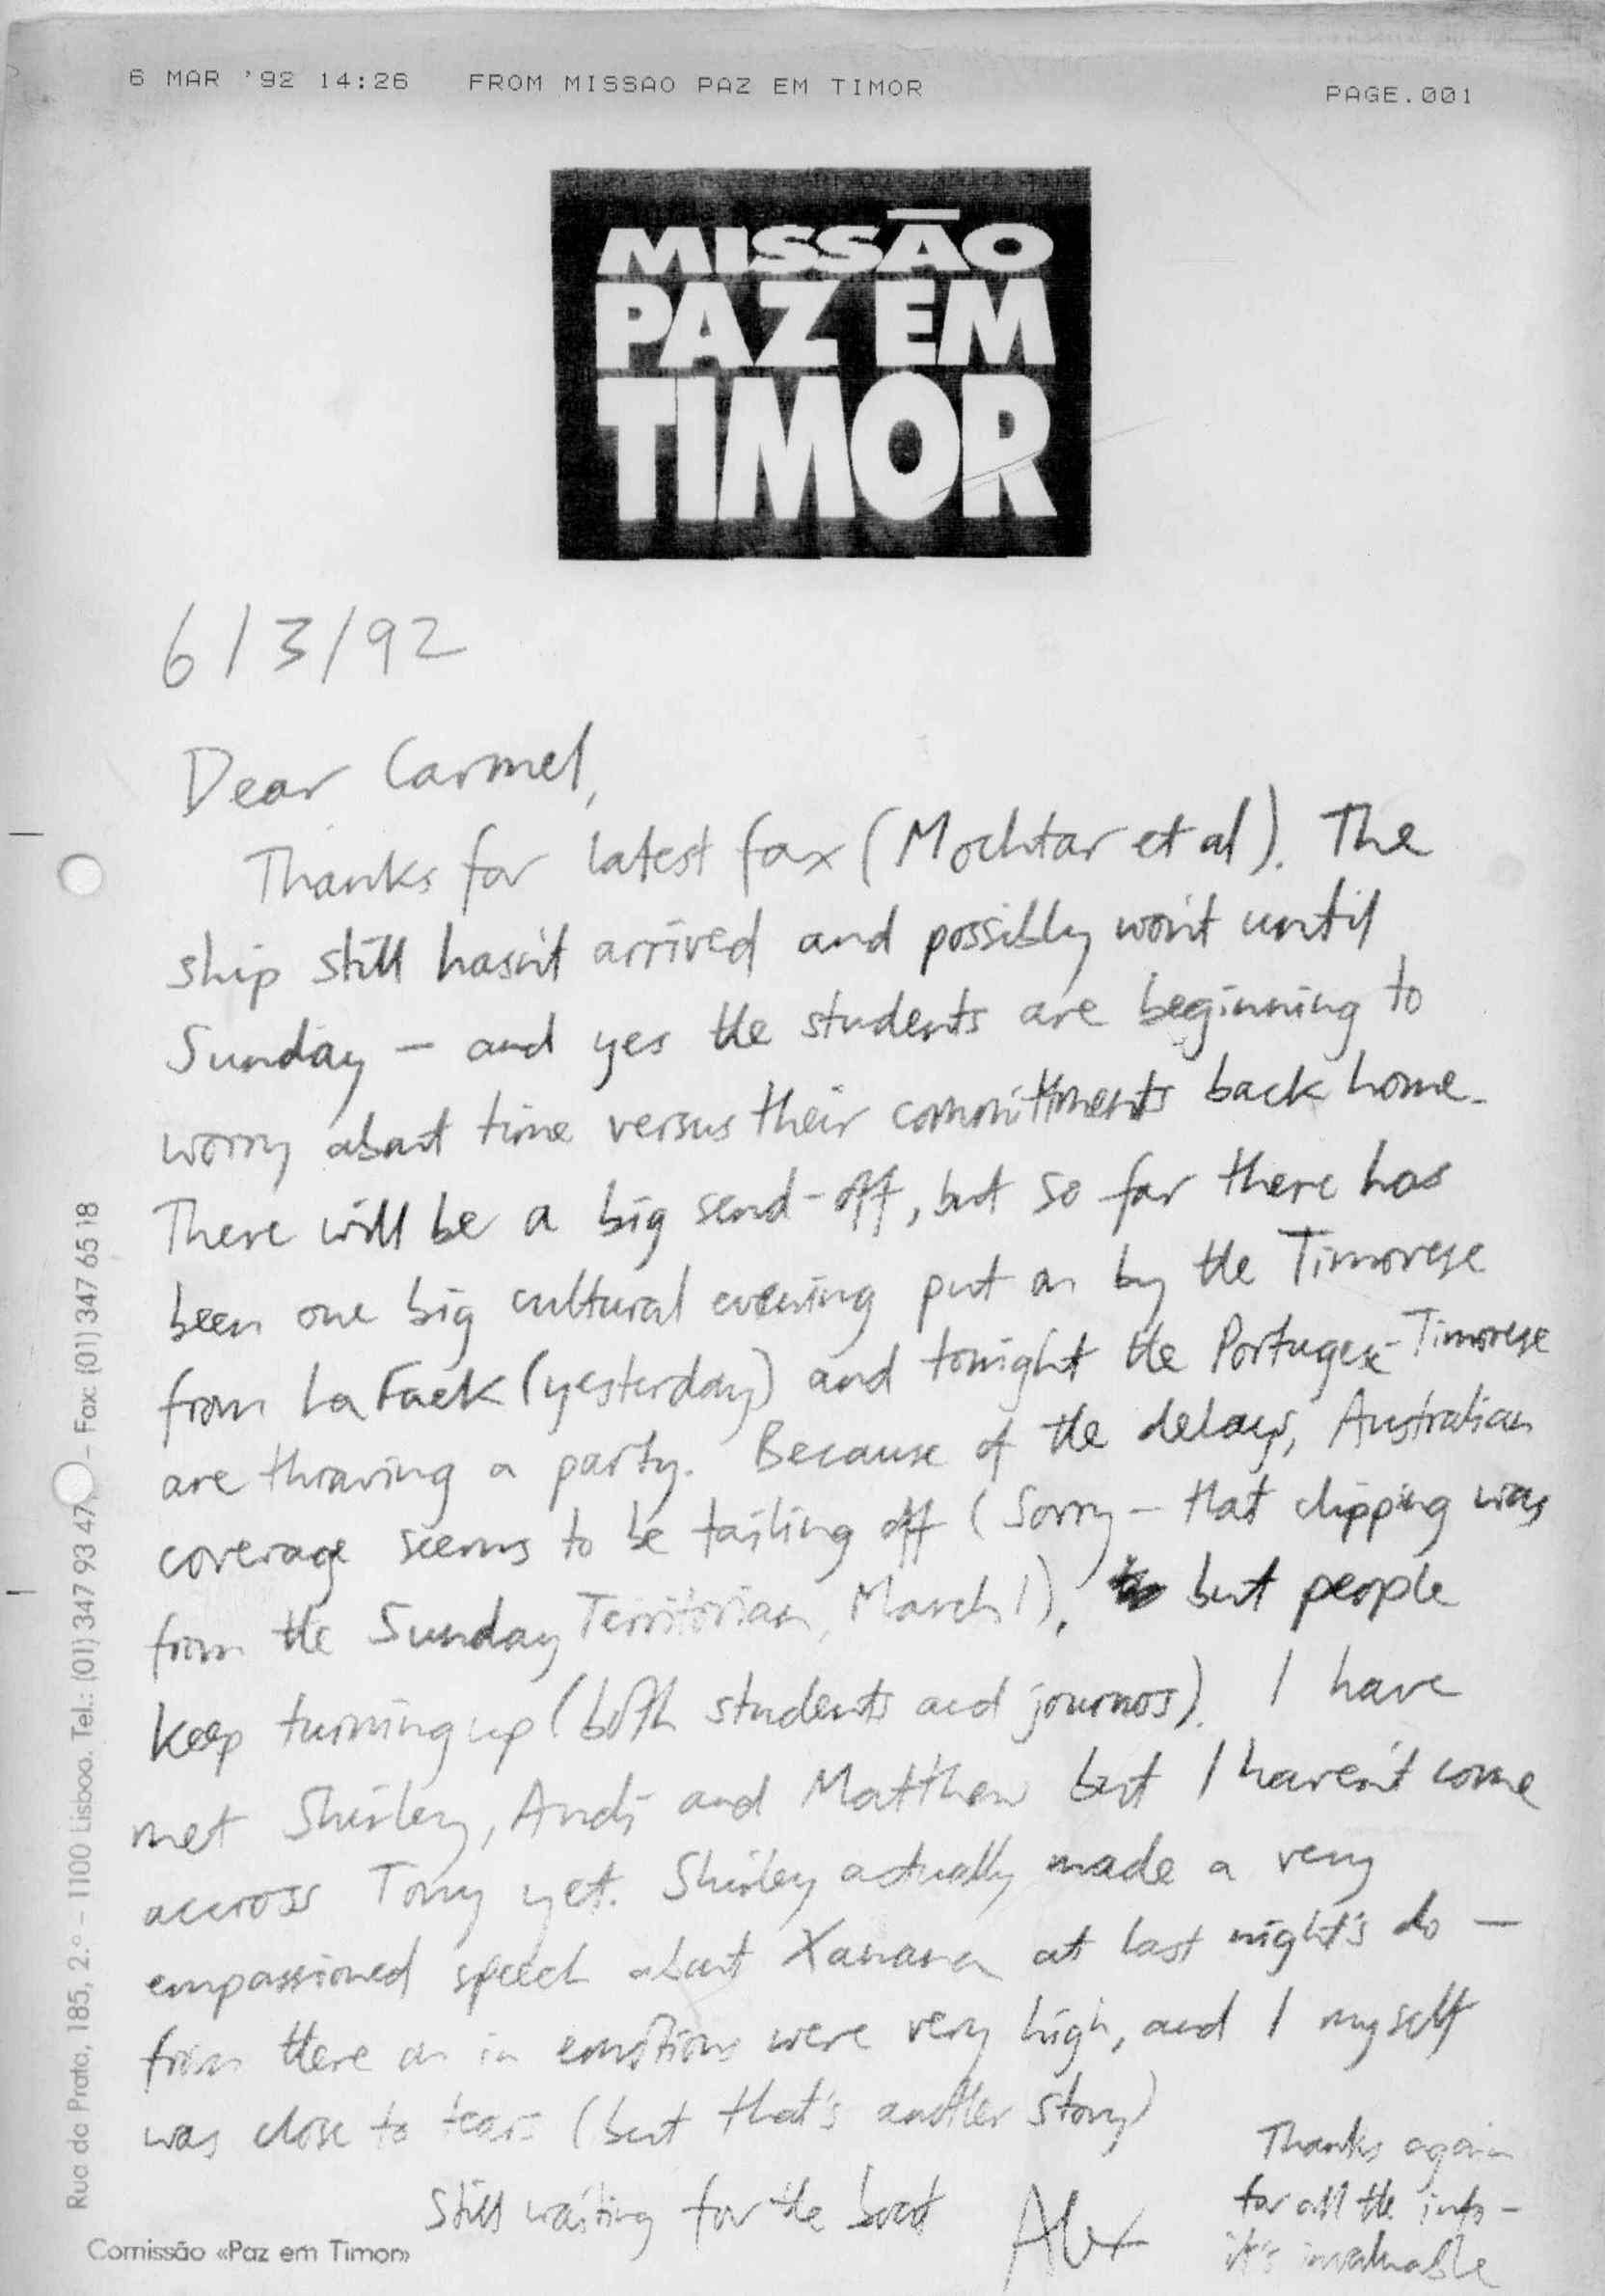 6 MAR '92 14:26 FROM MISSAO PAZ EM TIMOR PAGE.001
MISSÃO
PAZ EM
TIMOR
6/3/92
Dear Carmel,
Thanks for latest fax (Mochtar et al). The
ship still hasn't arrived and possibly won't until
Sunday – and yes the students are beginning to
worry about time versus their committments back home.
There will be a big send-off, but so far there has
been one big cultural evening put on by the Timorese
from Lafaek (yesterday) and tonight the Portugese-Timorese
are throwing a party. Because of the delays, Australian
coverage seems to be tailing off (Sorry – that clipping was
from the Sunday Territorian, March 1), but people
keep turning up (both students and journos). I have
met Shirley, Andi and Matthew but I haven't come
accross Tony yet. Shirley actually made a very
empassioned speech about Xanana at last night's do –
from there on in emotions were very high, and I myself
was close to tears (but that's another story)
Still waiting for the boat
Alex
Thanks again
for all the info –
it's invaluable
Comissão «Paz em Timor»
Rua da Prata, 185, 2.º – 1100 Lisboa. Tel.: (01) 347 93 47 – Fax: (01) 347 65 18